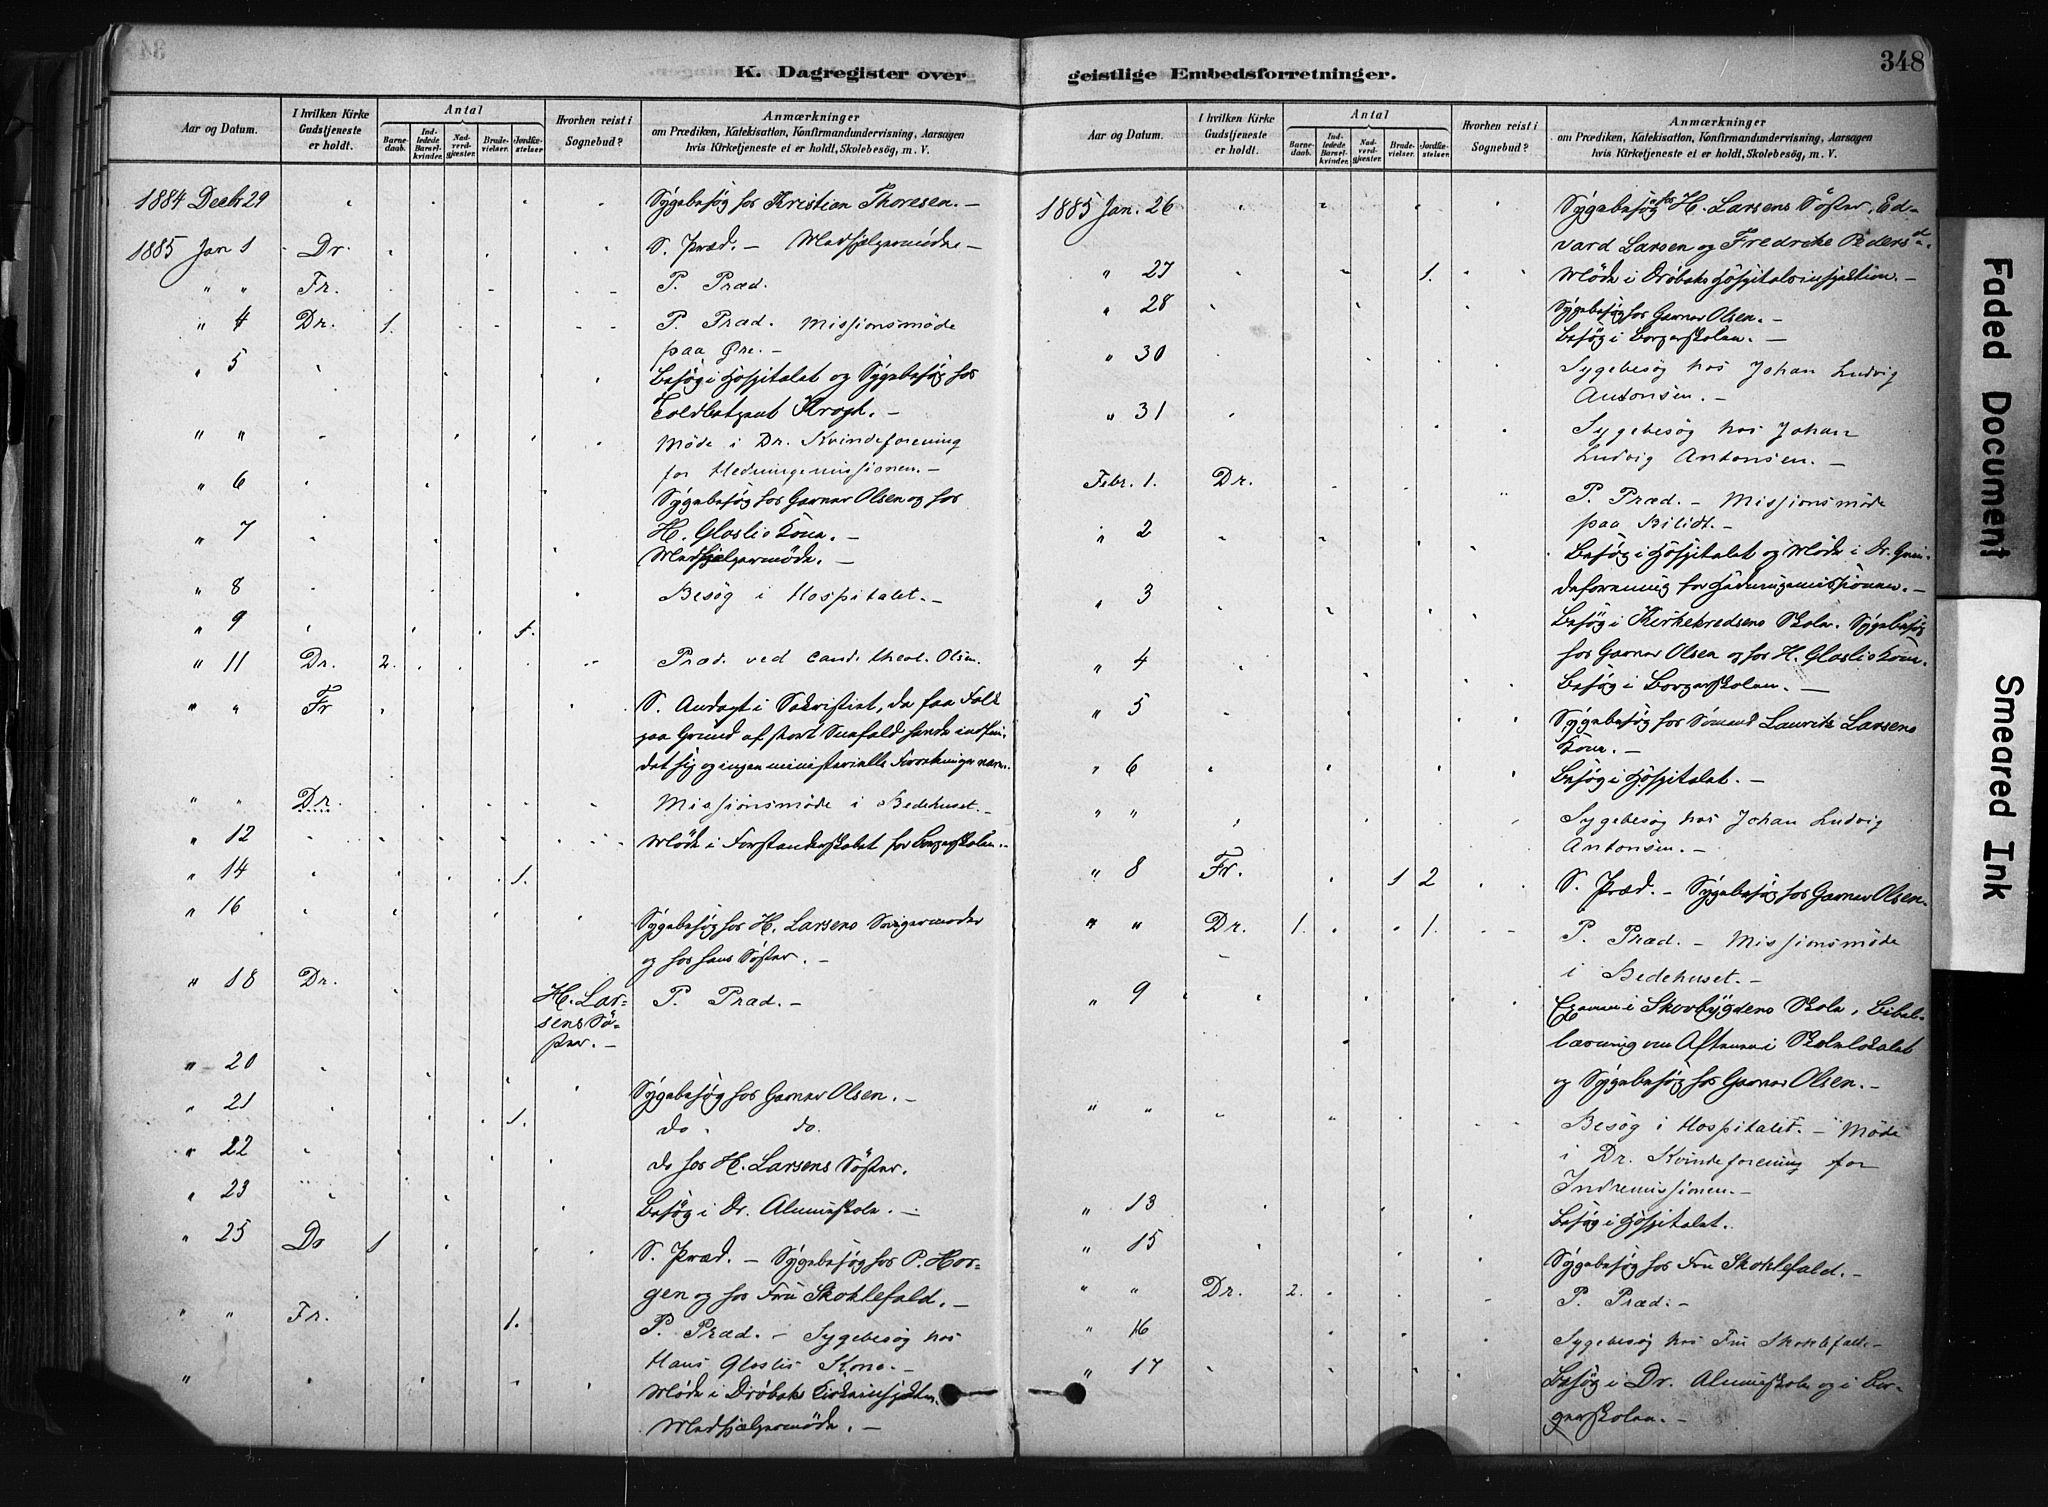 348
K. Dagregister over geistlige Embedsforretninger.
Aar og Datum.
I hvilken Kirke Gudstjeneste er holdt.
Antal
Barnedaab.
Indledede Barselkvinder.
Nadverdgjester.
Brudevielser.
Jordfæstelser.
Hvorhen reist i Sognebud?
Anmærkninger
om Prædiken, Katekisation, Konfirmandundervisning, Aarsagen
hvis Kirketjeneste ei er holdt, Skolebesøg, m. V.
1884 Decbr 29 Sygebesøg hos Kristian Thoresen. —
1885 Jan 1 Dr. S. Præd. — Medhjælpermøde —
" " Fr. P. Præd.
" 4 Dr. 1. P. Præd. Missionsmøde
paa Øre. —
" 5 Besøg i Hospitalet og Sygebesøg hos
Toldbetjent Krogh. —
" " Møde i Dr. Kvindeforening
for Hedningemissionen. —
" 6 Sygebesøg hos Garver Olsen og hos
H. Gloslis Kone. —
" 7 Medhjælpermøde. —
" 8 Besøg i Hospitalet. —
" 9 1.
" 11 Dr. 2. Præd. ved cand. theol. Olsen.
" " Fr S. Andagt i Sakristiet, da faa Folk
paa Grund af stort Snefald havde indfun-
det sig og ingen ministerielle Forretninger vare.
" " Dr. Missionsmøde i Bedehuset. —
" 12 Møde i Forstanderskabet for Borgerskolen. —
" 14 1.
" 16 Sygebesøg hos H. Larsens Svigermoder
og hos hans Søster. —
" 18 Dr. H. Lar-
sens Sø-
ster. — P. Præd. —
" 20 Sygebesøg hos Garver Olsen. —
" 21 1. do. do.
" 22 do hos H. Larsens Søster.
" 23 Besøg i Dr. Almueskole. —
" 25 Dr 1 S. Præd. — Sygebesøg hos P. Hor-
gen og hos Fru Skoklefald. —
" " Fr. 1. P. Præd. — Sygebesøg hos
Hans Gloslis Kone. —
" Møde i Drøbaks Kirkeinspektion.
Medhjælpermøde. —
Aar og Datum.
I hvilken Kirke Gudstjeneste er holdt.
Antal
Barnedaab.
Indledede Barselkvinder.
Nadverdgjester.
Brudevielser.
Jordfæstelser.
Hvorhen reist i Sognebud?
Anmærkninger
om Prædiken, Katekisation, Konfirmandundervisning, Aarsagen
hvis Kirketjeneste ei er holdt, Skolebesøg, m. V.
1885 Jan. 26 Sygebesøg hos H. Larsens Søster, Ed-
vard Larsen og Fredrikke Pedersd.
" 27 1. Møde i Drøbaks Hospitalsinspektion. —
" 28 Sygebesøg hos Garver Olsen. —
Besøg i Borgerskolen. —
" 30 Sygebesøg hos Johan Ludvig
Antonsen. —
" 31 Sygebesøg hos Johan
Ludvig Antonsen. —
Febr. 1. Dr. P. Præd. — Missionsmøde
paa Bilidt. —
" 2 Besøg i Hospitalet og Møde i Dr. Qvin-
deforening for Hedningemissionen. —
" 3 Besøg i Kirkekredsens Skole. Sygebesøg
hos Garver Olsen og hos H. Gloslis Kone.
" 4 Besøg i Borgerskolen. —
" 5 Sygebesøg hos Sømand Lauritz Larsens
Kone. —
" 6 Besøg i Hospitalet. —
" " Sygebesøg hos Johan Ludvig
Antonsen. —
" 8 Fr. 1 2 S. Præd. — Sygebesøg hos Garver Olsen.
" " Dr. 1. 1. P. Præd. — Missionsmøde
i Bedehuset. —
" 9 Examen i Skovbygdens Skole, Bibel-
læsning om Aftenen i Skolelokalet
og Sygebesøg hos Garver Olsen. —
" " Besøg i Hospitalet. — Møde
i Dr. Kvindeforening for
Indremissionen. —
" 13 Besøg i Hospitalet.
" 15 Sygebesøg hos Fru Skoklefald. —
" " Dr. 2. P. Præd. —
" 16 Sygebesøg hos Fru Skoklefald. —
" 17 Besøg i Dr. Almueskole og i Bor-
gerskolen. —
Faded Document
Smeared Ink